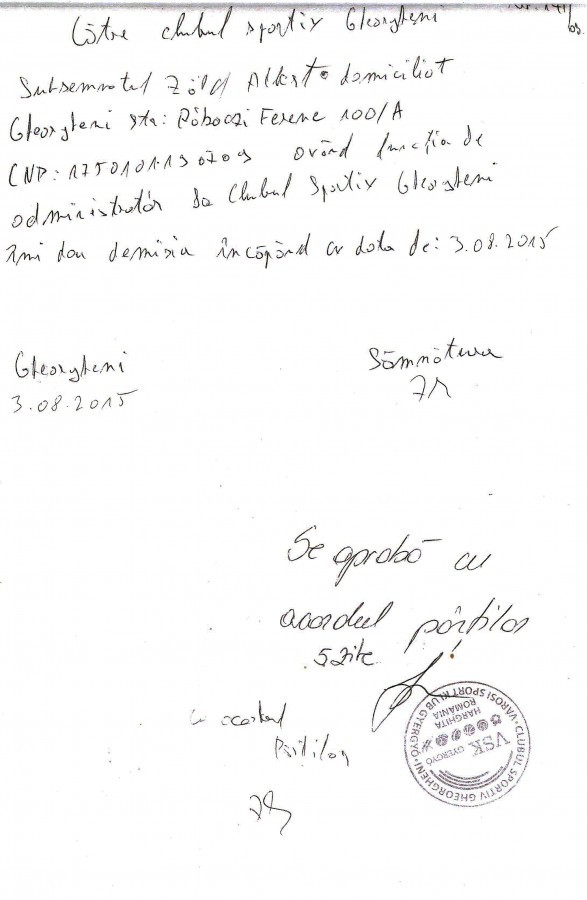 Nr. 141/
03.
Către clubul sportiv Gheorgheni
Subsemnatul Zöld Albert domiciliat
Gheorgheni str: Rákoczi Ferenc 100/A
CNP: 1750101193709 având funcția de
administrator la Clubul Sportiv Gheorgheni
Îmi dau demisia începând cu data de: 3.08.2015
Gheorgheni
3.08.2015
Sămnătura
Se aprobă cu
acordul părților!
cu acordul
Părtilor
CLUBUL SPORTIV GHEORGHENI • VÁROSI SPORT KLUB GYERGYÓ
ROMANIA
HARGHITA
VSK GYERGYÓ